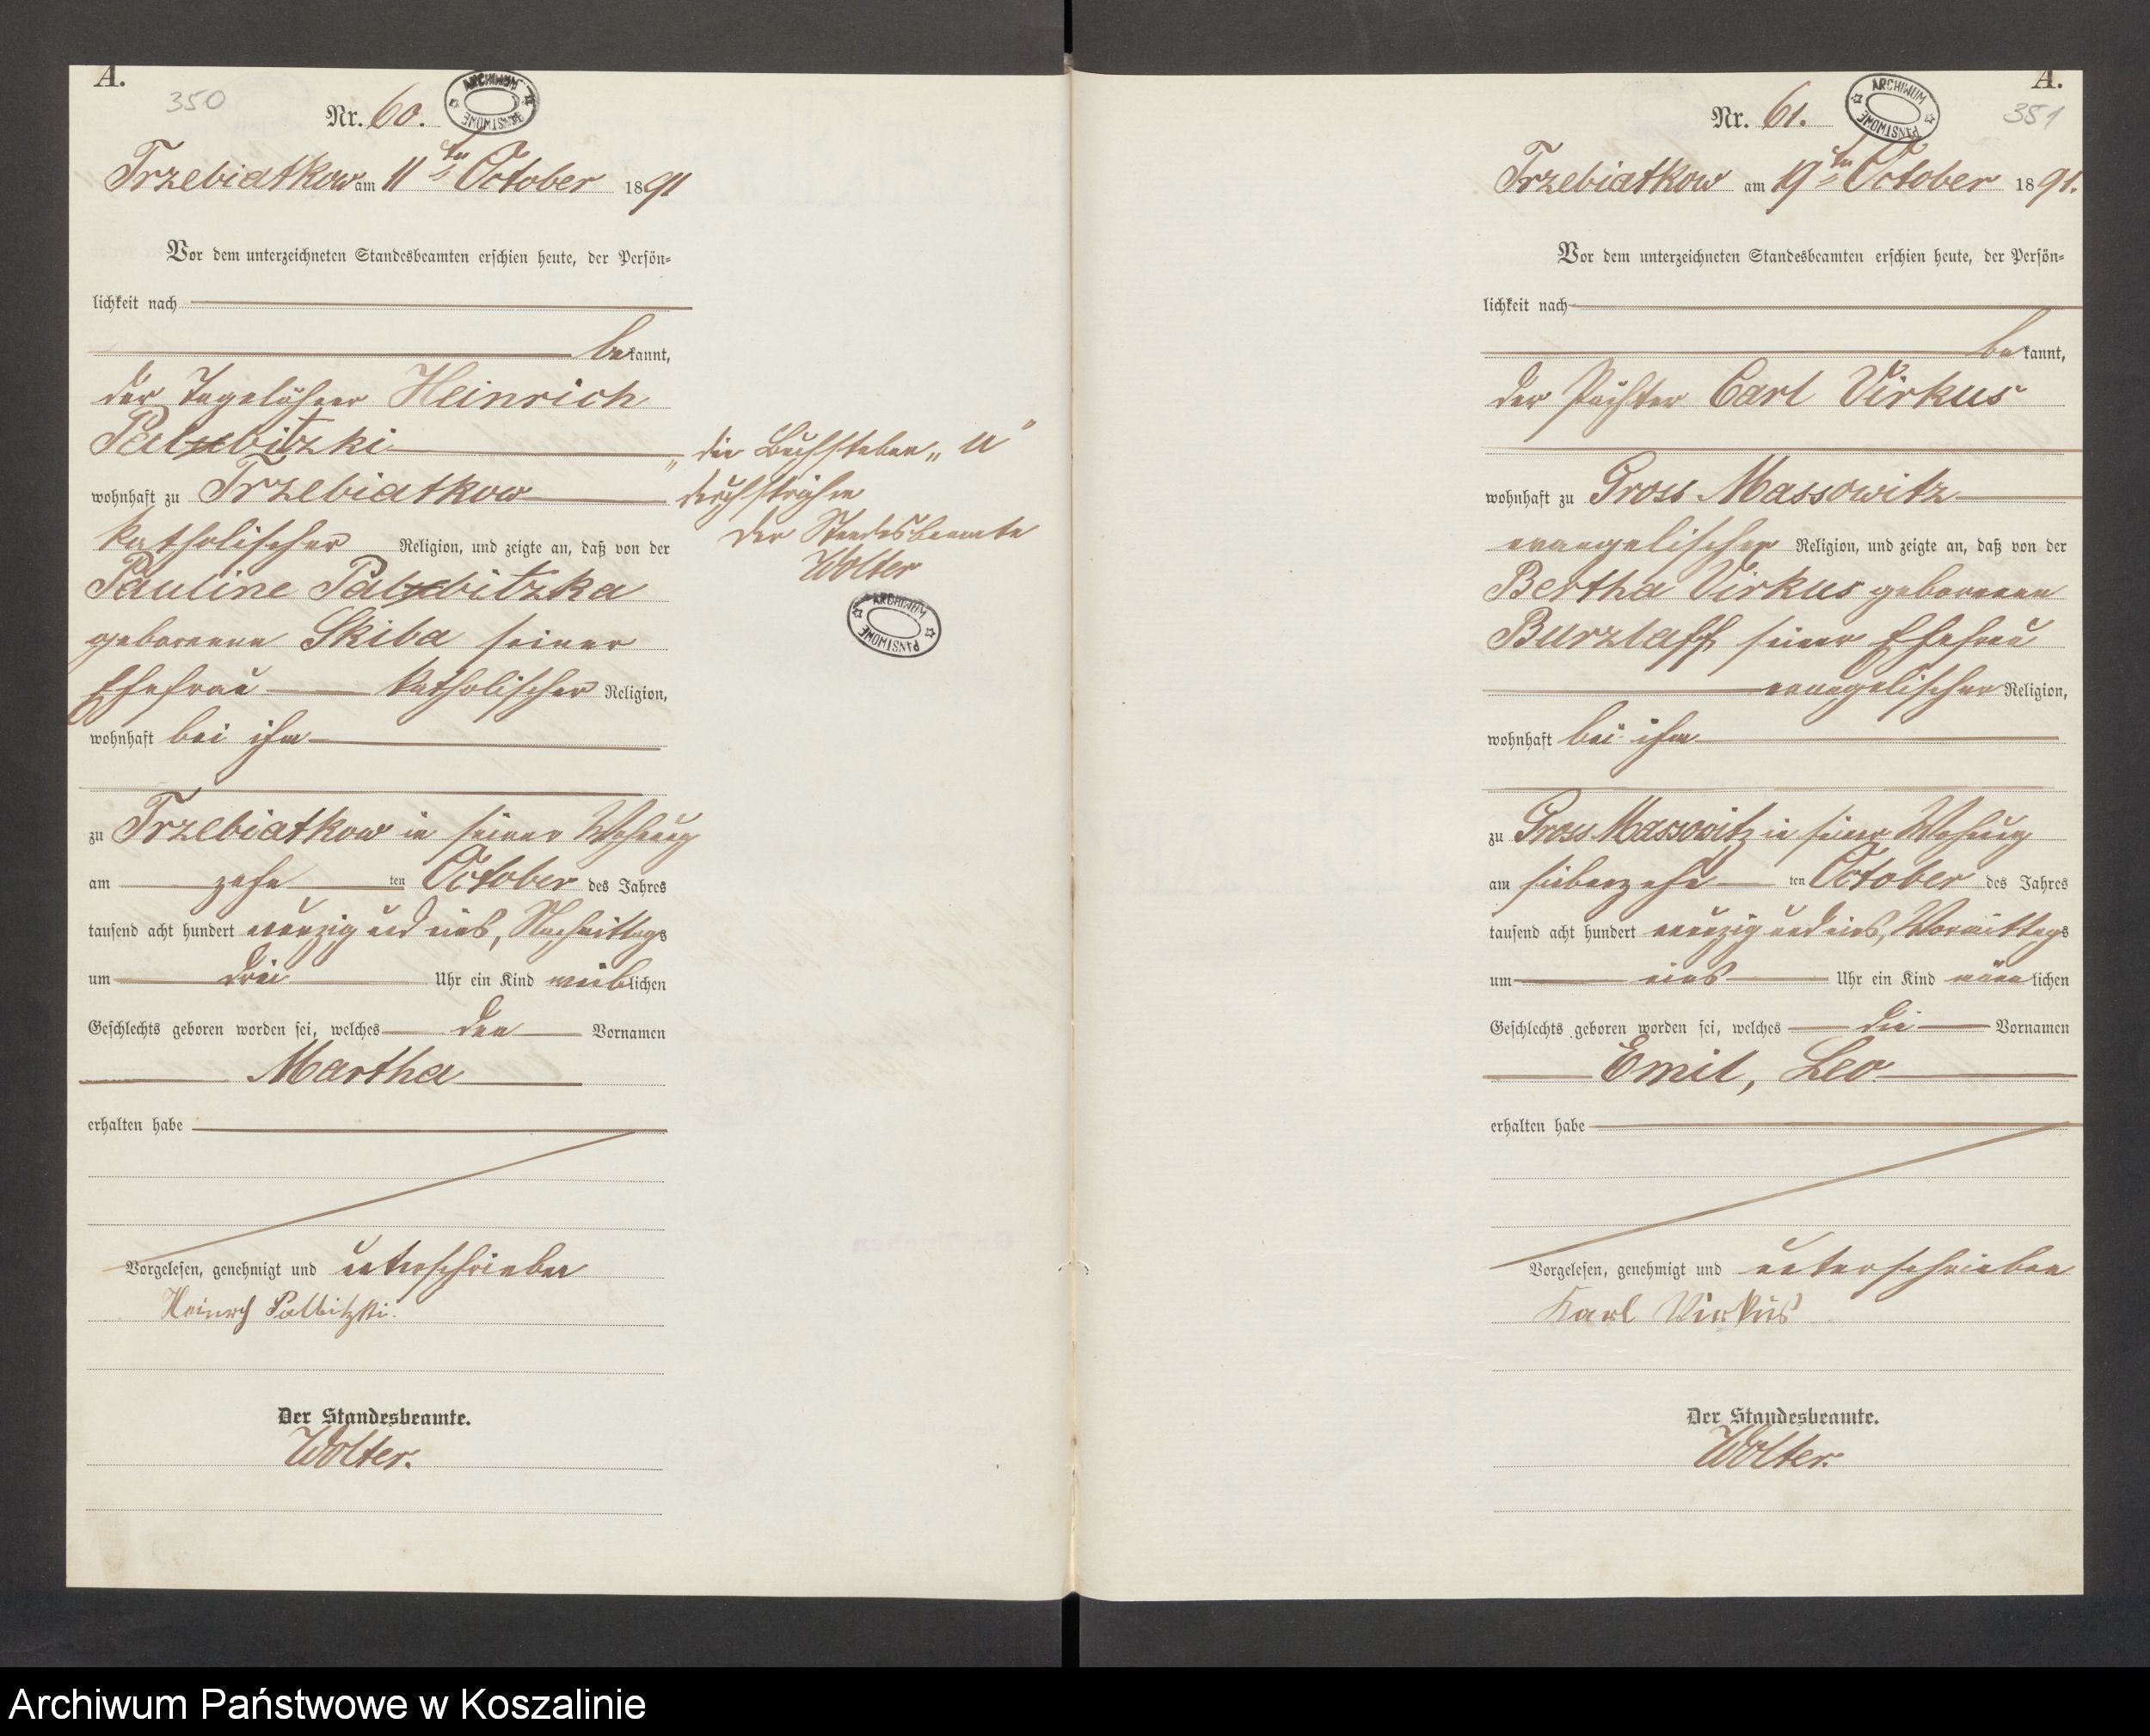 A.
350
Nr. 60.
ARCHIWUM PAŃSTWOWE
Trzebiatkow am 11ten October 1891
Vor dem unterzeichneten Standesbeamten erschien heute, der Persön=
lichkeit nach
bekannt,
der Tagelöhner Heinrich
Palubitzki
wohnhaft zu Trzebiatkow
katholischer Religion, und zeigte an, daß von der
Pauline Palubitzka
geborenen Skiba seiner
Ehefrau katholischer Religion,
wohnhaft bei ihm
zu Trzebiatkow in seiner Wohnung
am zehn ten October des Jahres
tausend acht hundert neunzig und eins, Nachmittags
um drei Uhr ein Kind weiblichen
Geschlechts geboren worden sei, welches den Vornamen
Martha
erhalten habe
Vorgelesen, genehmigt und unterschrieben
Heinrch Palbitzki.
Der Standesbeamte.
Wolter.
„die Buchstaben „u“
durchstrichen
Der Standesbeamte
Wolter
ARCHIWUM PAŃSTWOWE
A.
351
Nr. 61.
ARCHIWUM PAŃSTWOWE
Trzebiatkow am 19ten October 1891.
Vor dem unterzeichneten Standesbeamten erschien heute, der Persön=
lichkeit nach
bekannt,
der Pächter Carl Virkus
wohnhaft zu Gross Massowitz
evangelischer Religion, und zeigte an, daß von der
Bertha Virkus geborenen
Burzlaff seiner Ehefrau
evangelischer Religion,
wohnhaft bei ihm
zu Gross Massowitz in seiner Wohnung
am siebenzehn ten October des Jahres
tausend acht hundert neunzig und eins, Vormittags
um eins Uhr ein Kind männlichen
Geschlechts geboren worden sei, welches die Vornamen
Emil, Leo
erhalten habe
Vorgelesen, genehmigt und unterschrieben
Karl Virkus
Der Standesbeamte.
Wolter.
Archiwum Państwowe w Koszalinie